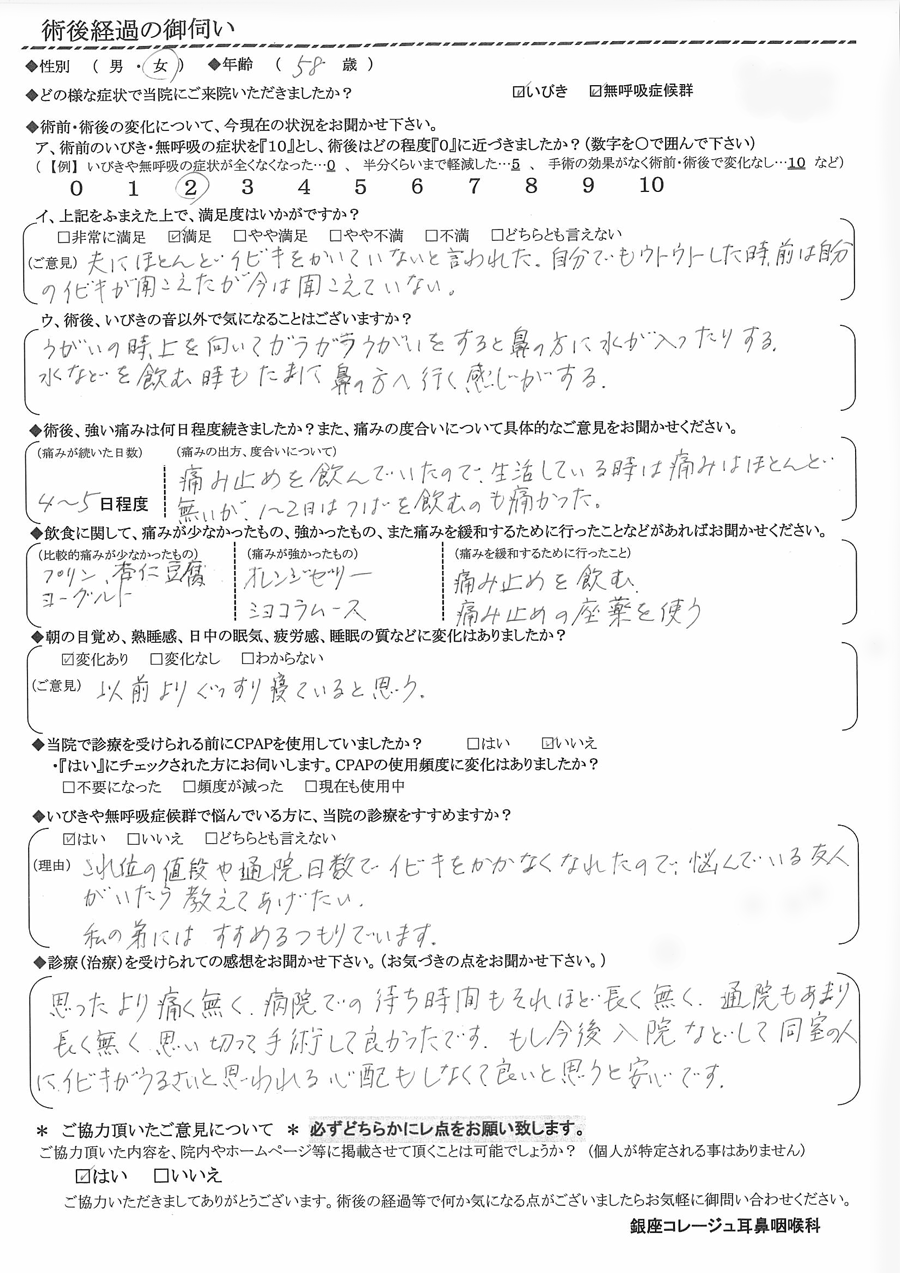 術後経過の御伺い
◆性別 ( 男 ・ 女 ) ◆年齢 ( 58 歳 )
◆どの様な症状で当院にご来院いただきましたか? ☑いびき ☑無呼吸症候群
◆術前・術後の変化について、今現在の状況をお聞かせ下さい。
ア、術前のいびき・無呼吸の症状を『10』とし、術後はどの程度『0』に近づきましたか?(数字を○で囲んで下さい)
(【例】いびきや無呼吸の症状が全くなくなった…0 、 半分くらいまで軽減した…5 、 手術の効果がなく術前・術後で変化なし…10 など)
0 1 2 3 4 5 6 7 8 9 10
イ、上記をふまえた上で、満足度はいかがですか?
□非常に満足 ☑満足 □やや満足 □やや不満 □不満 □どちらとも言えない
(ご意見) 夫にほとんどイビキをかいていないと言われた。自分でもウトウトした時、前は自分
のイビキが聞こえたが今は聞こえていない。
ウ、術後、いびきの音以外で気になることはございますか?
うがいの時、上を向いてガラガラうがいをすると鼻の方に水が入ったりする。
水などを飲む時もたまに鼻の方へ行く感じがする。
◆術後、強い痛みは何日程度続きましたか?また、痛みの度合いについて具体的なご意見をお聞かせください。
(痛みが続いた日数) (痛みの出方、度合いについて)
痛み止めを飲んでいたので、生活している時は痛みはほとんど
4〜5 日程度 無いが、1〜2日はつばを飲むのも痛かった。
◆飲食に関して、痛みが少なかったもの、強かったもの、また痛みを緩和するために行ったことなどがあればお聞かせください。
(比較的痛みが少なかったもの) (痛みが強かったもの) (痛みを緩和するために行ったこと)
プリン、杏仁豆腐 オレンジゼリー 痛み止めを飲む、
ヨーグルト ショコラムース 痛み止めの座薬を使う
◆朝の目覚め、熟睡感、日中の眠気、疲労感、睡眠の質などに変化はありましたか?
☑変化あり □変化なし □わからない
(ご意見) 以前よりぐっすり寝ていると思う。
◆当院で診療を受けられる前にCPAPを使用していましたか? □はい ☑いいえ
・『はい』にチェックされた方にお伺いします。CPAPの使用頻度に変化はありましたか?
□不要になった □頻度が減った □現在も使用中
◆いびきや無呼吸症候群で悩んでいる方に、当院の診療をすすめますか?
☑はい □いいえ □どちらとも言えない
(理由) これ位の値段や通院日数でイビキをかかなくなれたので、悩んでいる友人
がいたら教えてあげたい。
私の弟にはすすめるつもりでいます。
◆診療(治療)を受けられての感想をお聞かせ下さい。(お気づきの点をお聞かせ下さい。)
思ったより痛く無く、病院での待ち時間もそれほど長く無く、通院もあまり
長く無く、思い切って手術して良かったです。もし今後入院などして同室の人
に、イビキがうるさいと思われる心配もしなくて良いと思うと安心です。
* ご協力頂いたご意見について * 必ずどちらかにレ点をお願い致します。
ご協力頂いた内容を、院内やホームページ等に掲載させて頂くことは可能でしょうか? (個人が特定される事はありません)
☑はい □いいえ
ご協力いただきましてありがとうございます。術後の経過等で何か気になる点がございましたらお気軽に御問い合わせください。
銀座コレージュ耳鼻咽喉科